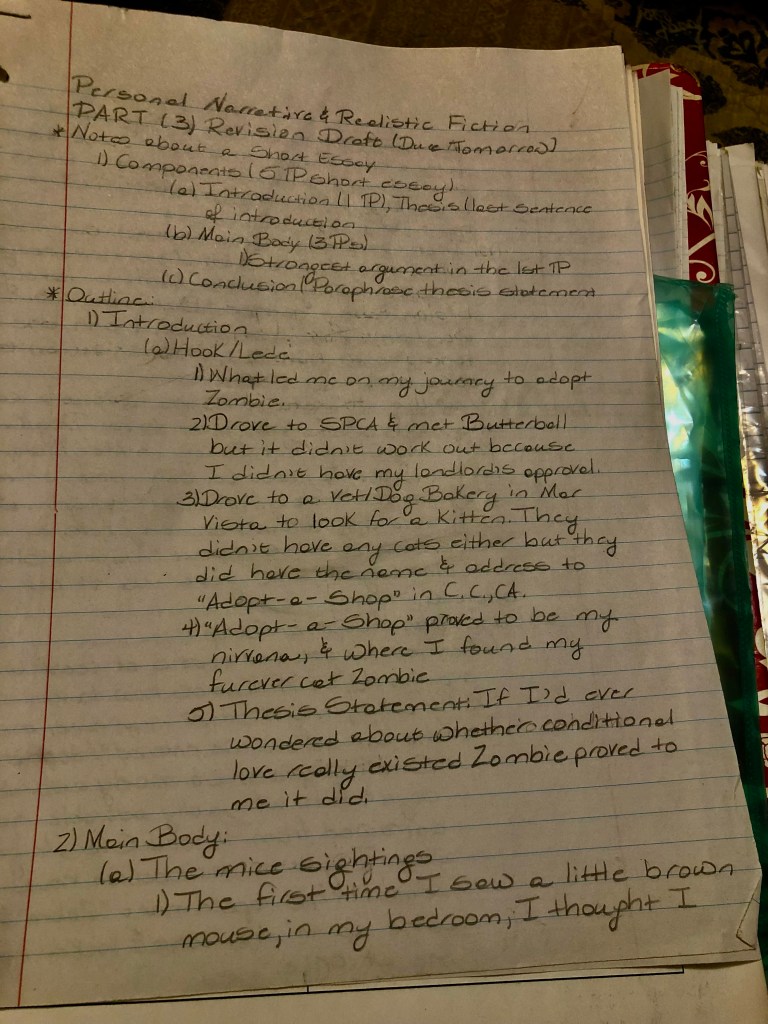 Personal Narrative & Realistic Fiction
PART (3) Revision Draft (Due Tomorrow)
* Notes about a Short Essay
1) Components (5 TP short essay)
(a) Introduction (1 TP), Thesis (last sentence
of introduction
(b) Main Body (3TPs)
1) Strongest argument in the 1st TP
(c) Conclusion (Paraphrase thesis statement
* Outline:
1) Introduction
(a) Hook/Lede
1) What led me on my journey to adopt
Zombie.
2) Drove to SPCA & met Butterball
but it didn't work out because
I didn't have my landlord's approval.
3) Drove to a Vet/Dog Bakery in Mar
Vista to look for a Kitten. They
didn't have any cats either but they
did have the name & address to
"Adopt-a-Shop" in C.C., CA.
4) "Adopt-a-Shop" proved to be my
nirvana, & where I found my
furever cat Zombie
5) Thesis Statement: If I'd ever
wondered about whether conditional
love really existed Zombie proved to
me it did.
2) Main Body:
(a) The mice sightings
1) The first time I saw a little brown
mouse, in my bedroom, I thought I